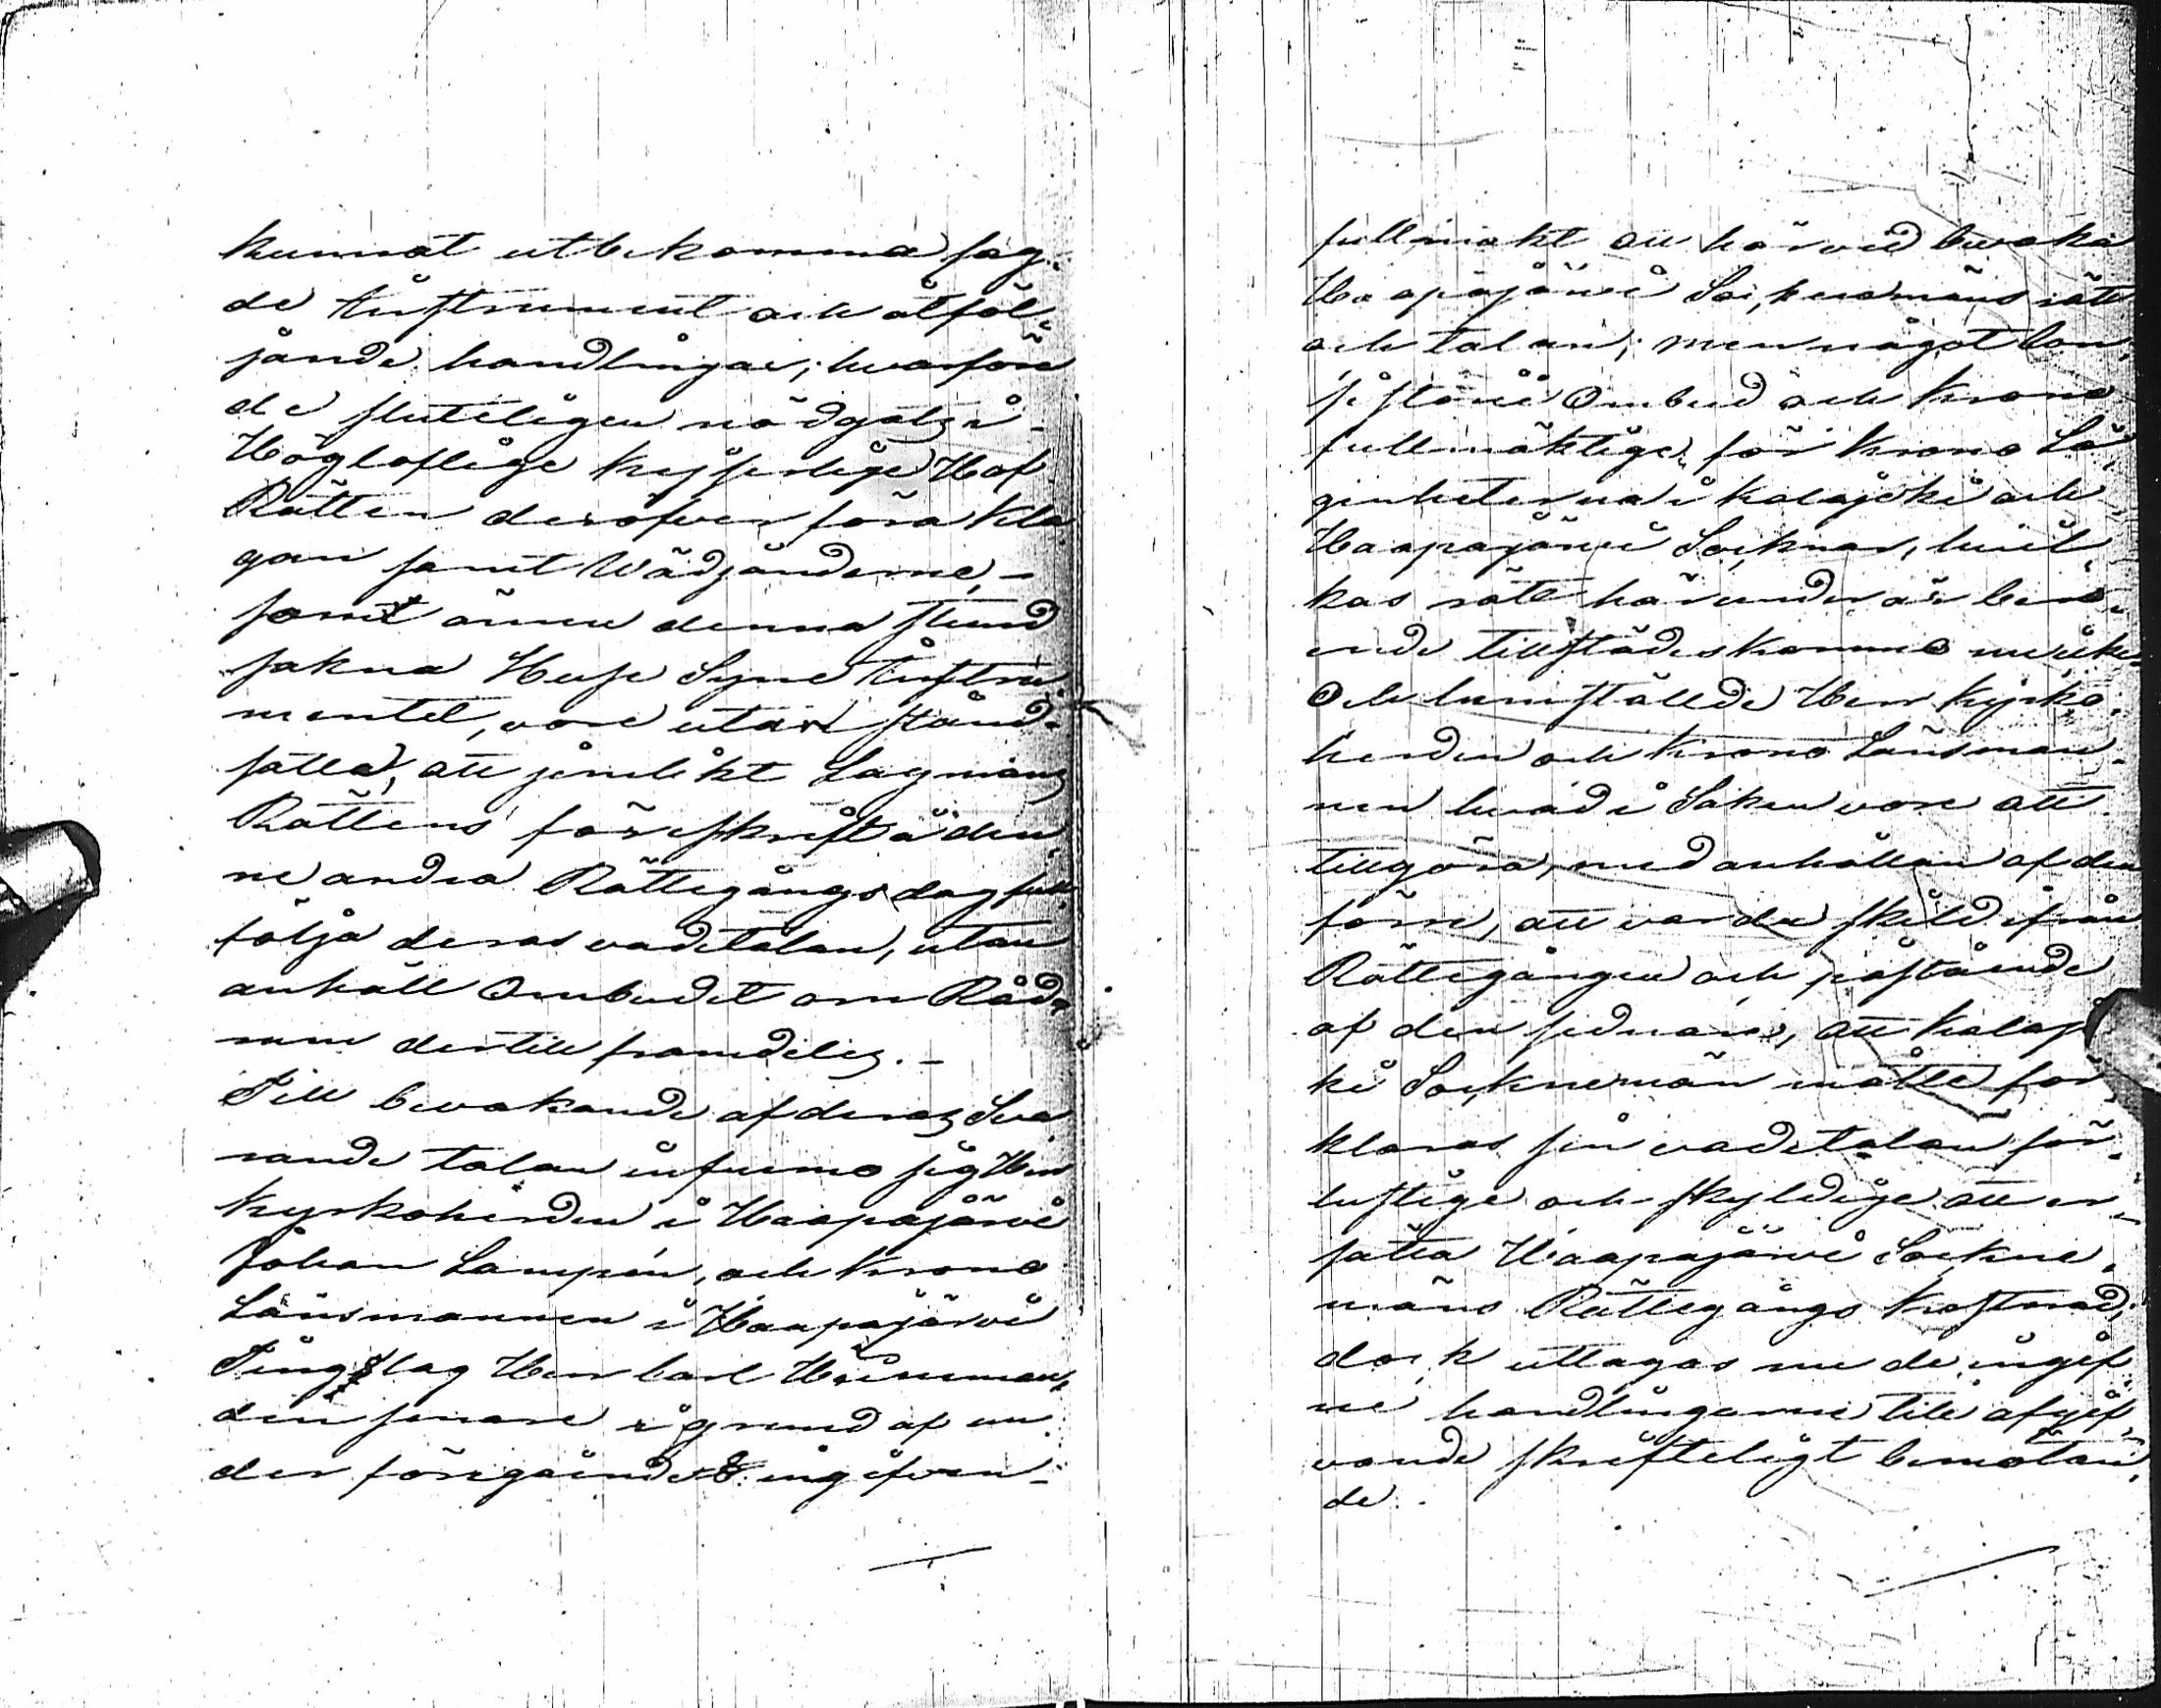 kunnat utbekomma sag-
de Instrument och åtföl-
jande handlingar; hvarföre
de sluteligen nödgatz i
Högloflige Kejserlige Hof
Rätten deröfver föra kla-
gan samt Wädjanderne, -
som ännu denna stund
sakna Huse Syne Instru-
mentet, vore utan stånd
satta, att jemlikt Lagmans
Rättens föreskrift å den-
ne andra Rättegångsdag full-
följa deras vadetalan, utan
anhöll Ombudet om Råd-
rum dertill framdeles. -
Till bevakande af deras Sva-
rande talan infunno sig Herr
Kyrkoherden i Haapajärvi
Johan Lampen, och Krono
Länsmannen i Haapajärvi
Tingslag Herr Carl
den senare i grund af un-
der föregående Ting gifven
fullmakt att härvid bevaka
Haapajärvi Sockenemäns rätt
och talan; men något Con-
sistorii Ombud och Krono
fullmäktige för Krono Lä-
genheterna i Kalajoki och
Haapajärvi Socknar, hvil-
kas rätt härunder är bero-
ende tillstädeskommo icke.
Och hemställde Herr Kyrko-
herden och Krono Länsman-
nen hvad i Saken vore att
tillgöra, med anhållan af den
förre, att varda skild ifrån
Rättegången och påstående
af den sednare, att Kalajo-
ki Socknemän måtte för-
klaras sin vadetalan för-
lustige och skyldige att er-
sätta Haapajärvi Sockne-
mäns Rättegångs kostnad;
dock uttagas nu de ingif-
ne handlingarne till afgif-
vande skrifteligt bemötan-
de.